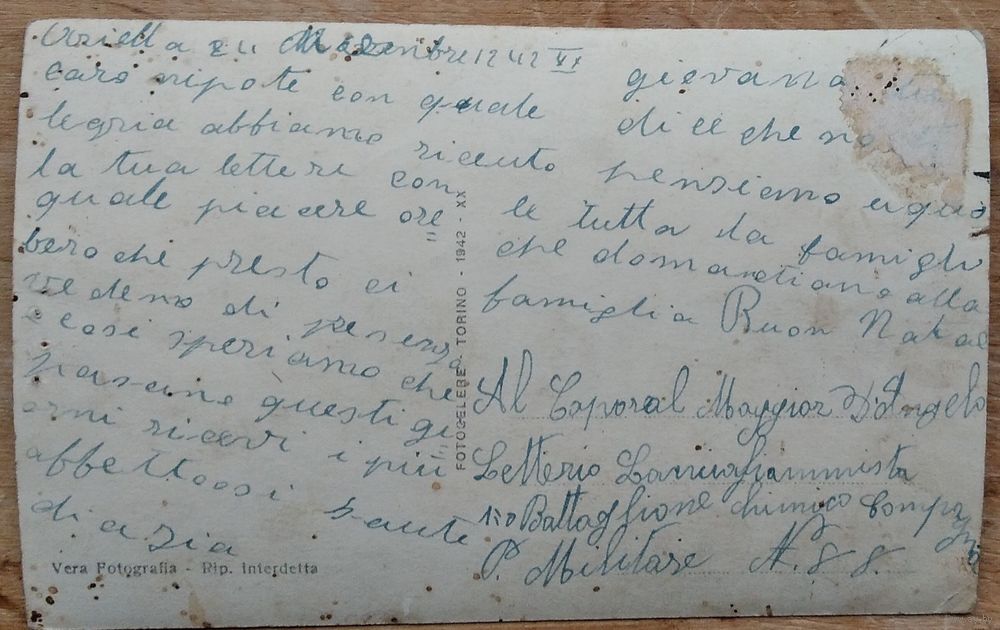 24 Dicembre 1942 XX
caro nipote con quale
legria abbiamo riciuto
la tua letteri con
quale piacere ore
bero che presto ci
vedemo di presenza
e cosi speriamo che
pasano questi gi
orni ricevi i più
affettoosi saute
di a Zia
giovana
dice che no
pensiamo
le tutta la famigli
che domandiano alla
famiglia Buon Natale
Al Caporal Maggior D'Angelo
Letterio Lanciafiammista
1°o Battaglione chimico Compagnia
P. Militare N. 88.
FOTOCELERE - TORINO - 1942 - XX
Vera Fotografia - Rip. interdetta